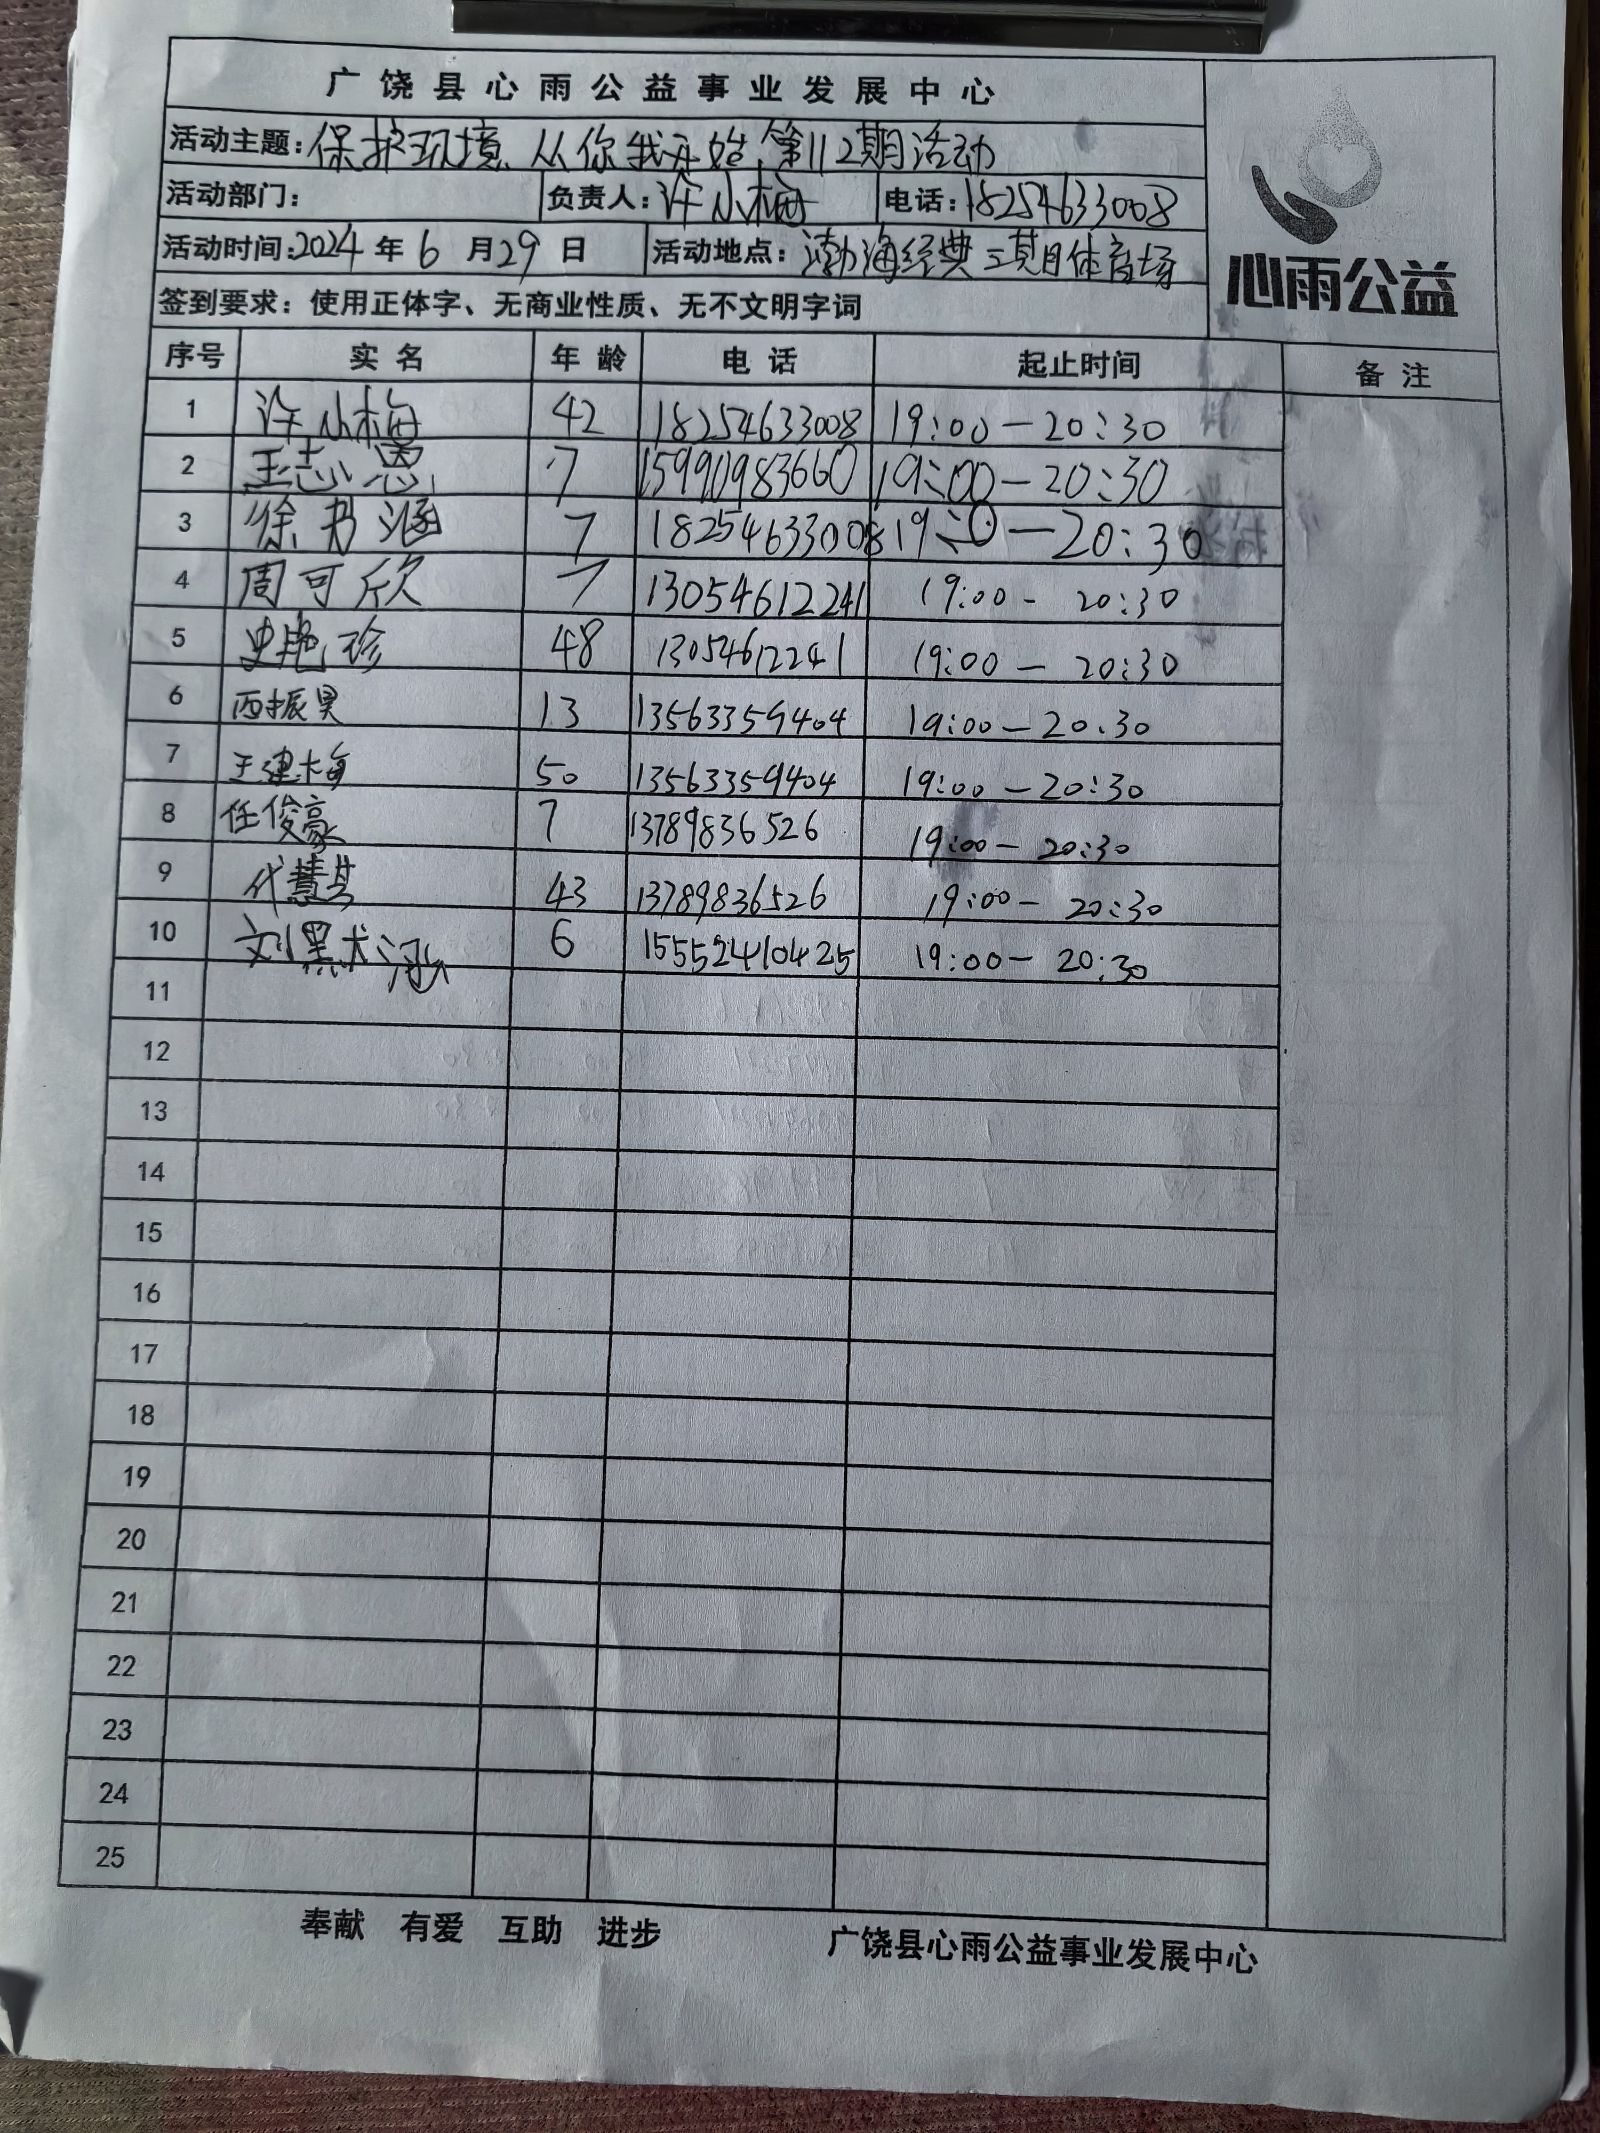 广饶县心雨公益事业发展中心
活动主题：保护环境 从你我开始 第112期活动
活动部门： 负责人：许小梅 电话：18254633008
活动时间：2024年6月29日 活动地点：渤海经典三期体育场
心雨公益
签到要求：使用正体字、无商业性质、无不文明字词
序号 实名 年龄 电话 起止时间 备注
1 许小梅 42 18254633008 19:00－20:30
2 王志恩 7 15990983660 19:00－20:30
3 徐书涵 7 18254633008 19:0－20:30
4 周可欣 7 13054612241 19:00－20:30
5 史艳珍 48 13054612241 19:00－20:30
6 西振昊 13 13563359404 19:00－20:30
7 王建梅 50 13563359404 19:00－20:30
8 任俊豪 7 13789836526 19:00－20:30
9 代慧其 43 13789836526 19:00－20:30
10 刘 6 15552410425 19:00－20:30
11
12
13
14
15
16
17
18
19
20
21
22
23
24
25
奉献 有爱 互助 进步 广饶县心雨公益事业发展中心